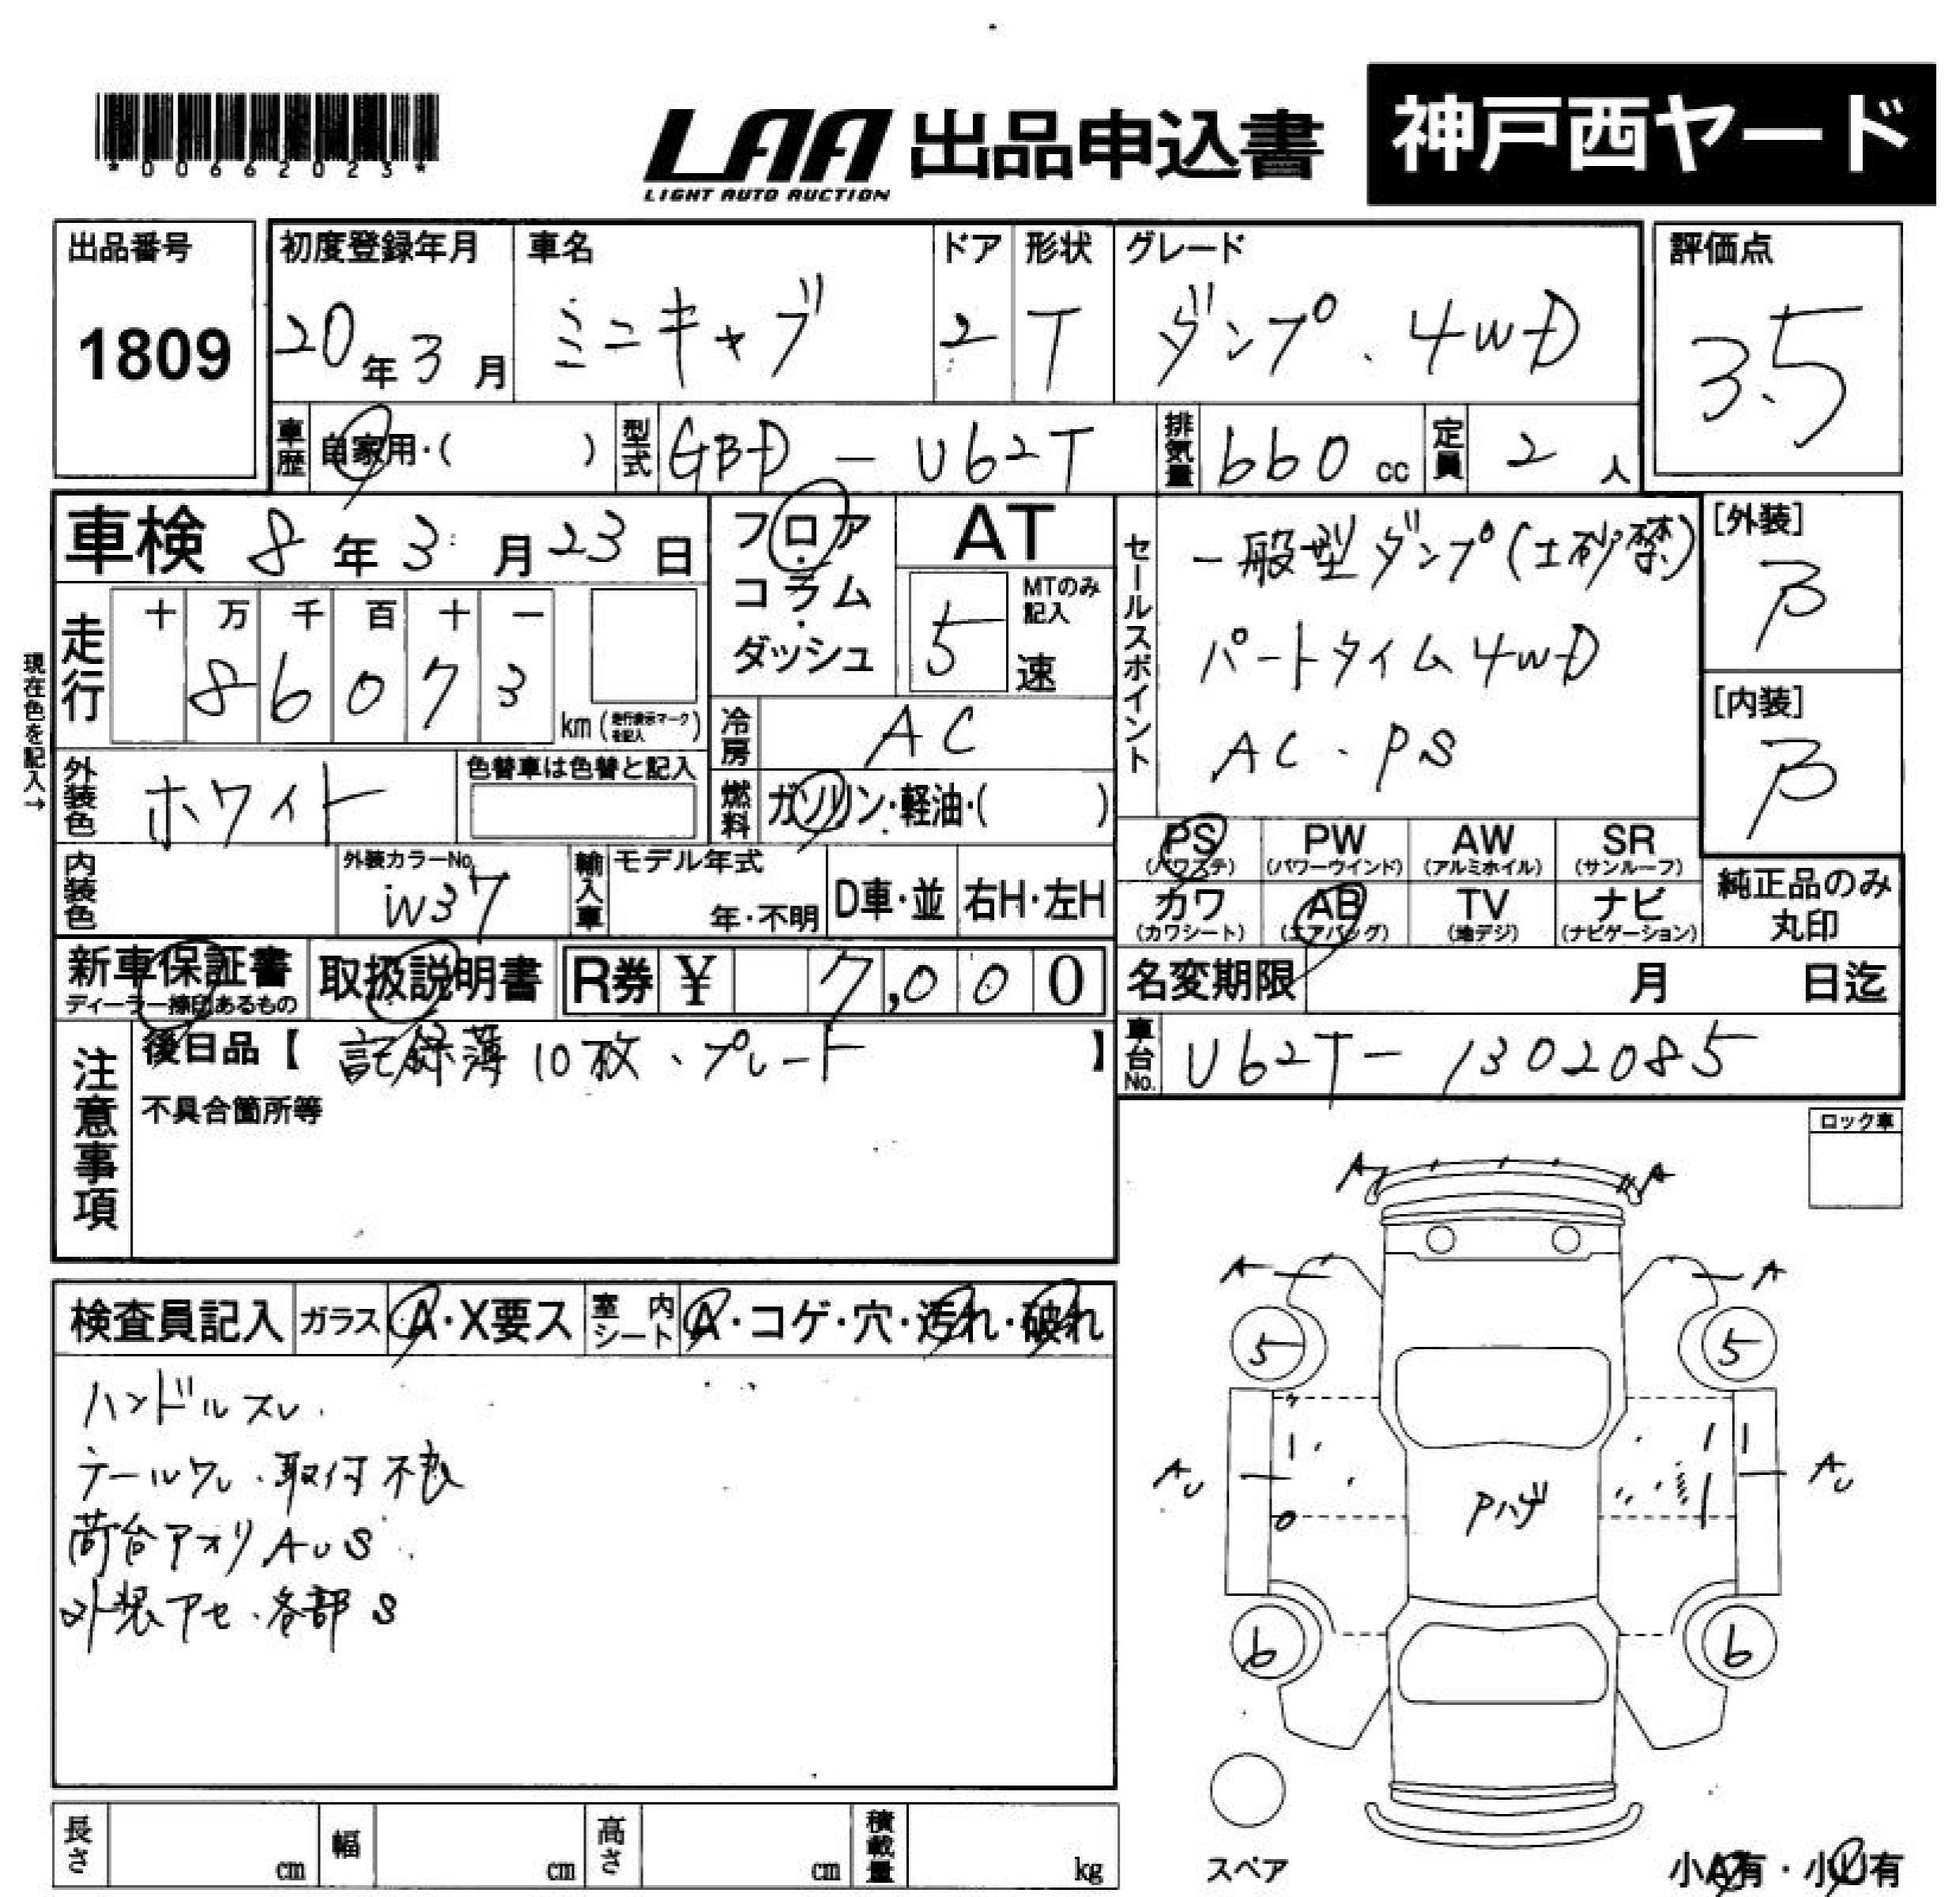 *00662023*
LAA 出品申込書 神戸西ヤード
LIGHT AUTO AUCTION
出品番号 初度登録年月 車名 ドア 形状 グレード 評価点
1809 20年3月 ミニキャブ 2 T ダンプ、4WD 3.5
車歴 自家用・( ) 型式 GBD - U62T 排気量 660 cc 定員 2 人
車検 8年3月23日 フロア AT セールスポイント 一般型ダンプ(土砂禁) [外装]
コラム B
ダッシュ 5 速 MTのみ記入 パートタイム4WD
現在色を記入→ 走行 十 万 千 百 十 一 [内装]
8 6 0 7 3 km (走行表示マークを記入) 冷房 AC AC、PS B
外装色 ホワイト 色替車は色替と記入 燃料 ガソリン・軽油・( )
PS (パワステ) PW (パワーウインド) AW (アルミホイル) SR (サンルーフ)
内装色 外装カラーNo. W37 輸入車 モデル年式 年・不明 D車・並 右H・左H
カワ (カワシート) AB (エアバッグ) TV (地デジ) ナビ (ナビゲーション) 純正品のみ丸印
新車保証書 取扱説明書 R券 ¥ 7,000 名変期限 月 日迄
ディーラー捺印あるもの
注意事項 後日品【 記録簿10枚、プレート 】 車台No. U62T-1302085
不具合箇所等
ロック車
検査員記入 ガラス A・X要ス 室内シート A・コゲ・穴・汚れ・破れ
ハンドルスレ.
テールワレ、取付不良
荷台アオリAUS
外装アセ、各部S
A A
A A
5 5
1 1 1
AU AU
Pハゲ
6 6
スペア
小A有・小U有
長さ cm 幅 cm 高さ cm 積載量 kg